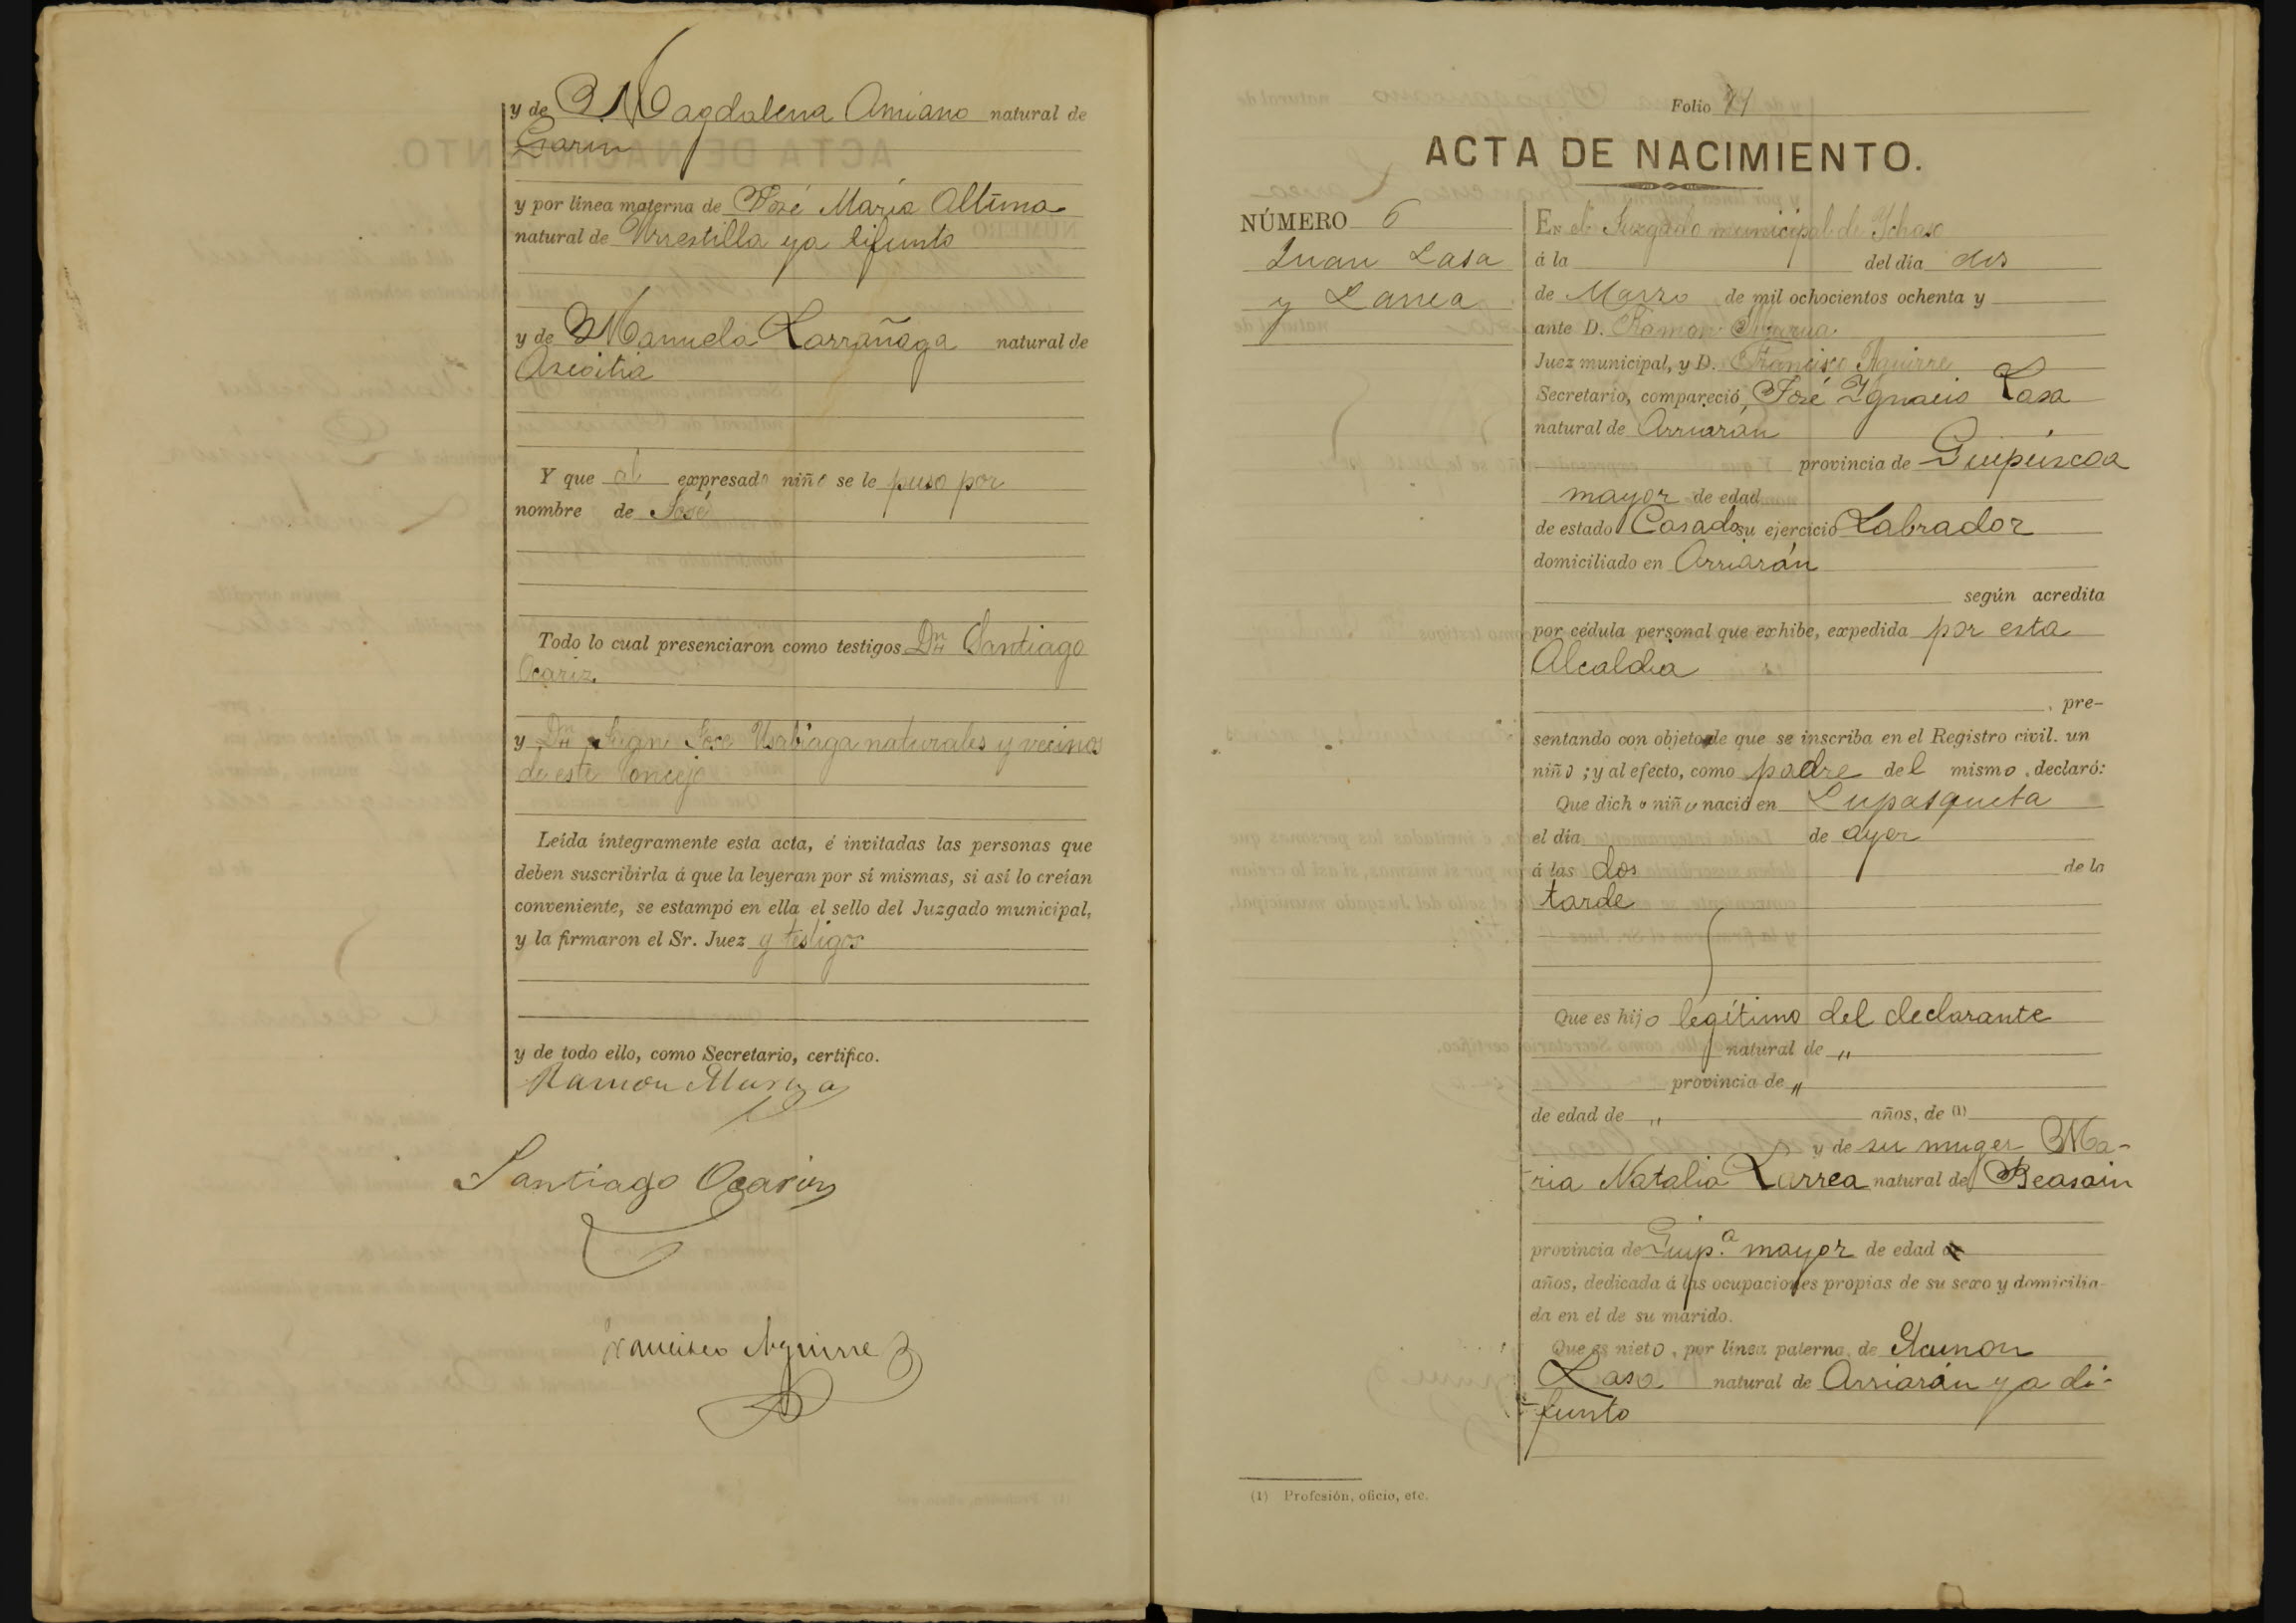 y de Dª Magdalena Amiano natural de
Garin
y por línea materna de José María Altuna
natural de Urrestilla ya difunto
y de Dª Manuela Larrañaga natural de
Azcoitia
Y que al expresado niño se le puso por
nombre de José
Todo lo cual presenciaron como testigos Dn Santiago
Ocariz
y Dn Juan José Usabiaga naturales y vecinos
de este Concejo
Leída íntegramente esta acta, é invitadas las personas que
deben suscribirla á que la leyeran por sí mismas, si así lo creían
conveniente, se estampó en ella el sello del Juzgado municipal,
y la firmaron el Sr. Juez y testigos
y de todo ello, como Secretario, certifico.
Ramon
Santiago Ocariz
Francisco Aguirre
Folio
ACTA DE NACIMIENTO.
NÚMERO 6
Juan Lasa
y Larrea
En el Juzgado municipal de Ichaso
á la del día dos
de Marzo de mil ochocientos ochenta y
ante D. Ramon
Juez municipal, y D. Francisco Aguirre
Secretario, compareció José Ygnacio Lasa
natural de Arriarán
provincia de Guipúzcoa
mayor de edad
de estado Casado su ejercicio Labrador
domiciliado en Arriarán
según acredita
por cédula personal que exhibe, expedida por esta
Alcaldia
, pre-
sentando con objeto de que se inscriba en el Registro civil. un
niño ; y al efecto, como padre del mismo, declaró:
Que dicho niño nació en Lupasqueta
el día de ayer
á las dos de la
tarde
Que es hijo legítimo del declarante
natural de "
provincia de "
de edad de " años, de (1)
y de su muger Ma-
ria Natalia Larrea natural de Beasain
provincia de Guip.a mayor de edad
años, dedicada á las ocupaciones propias de su sexo y domicilia-
da en el de su marido.
Que es nieto, por línea paterna, de Ramon
Lasa natural de Arriarán ya di-
funto
(1) Profesión, oficio, etc.